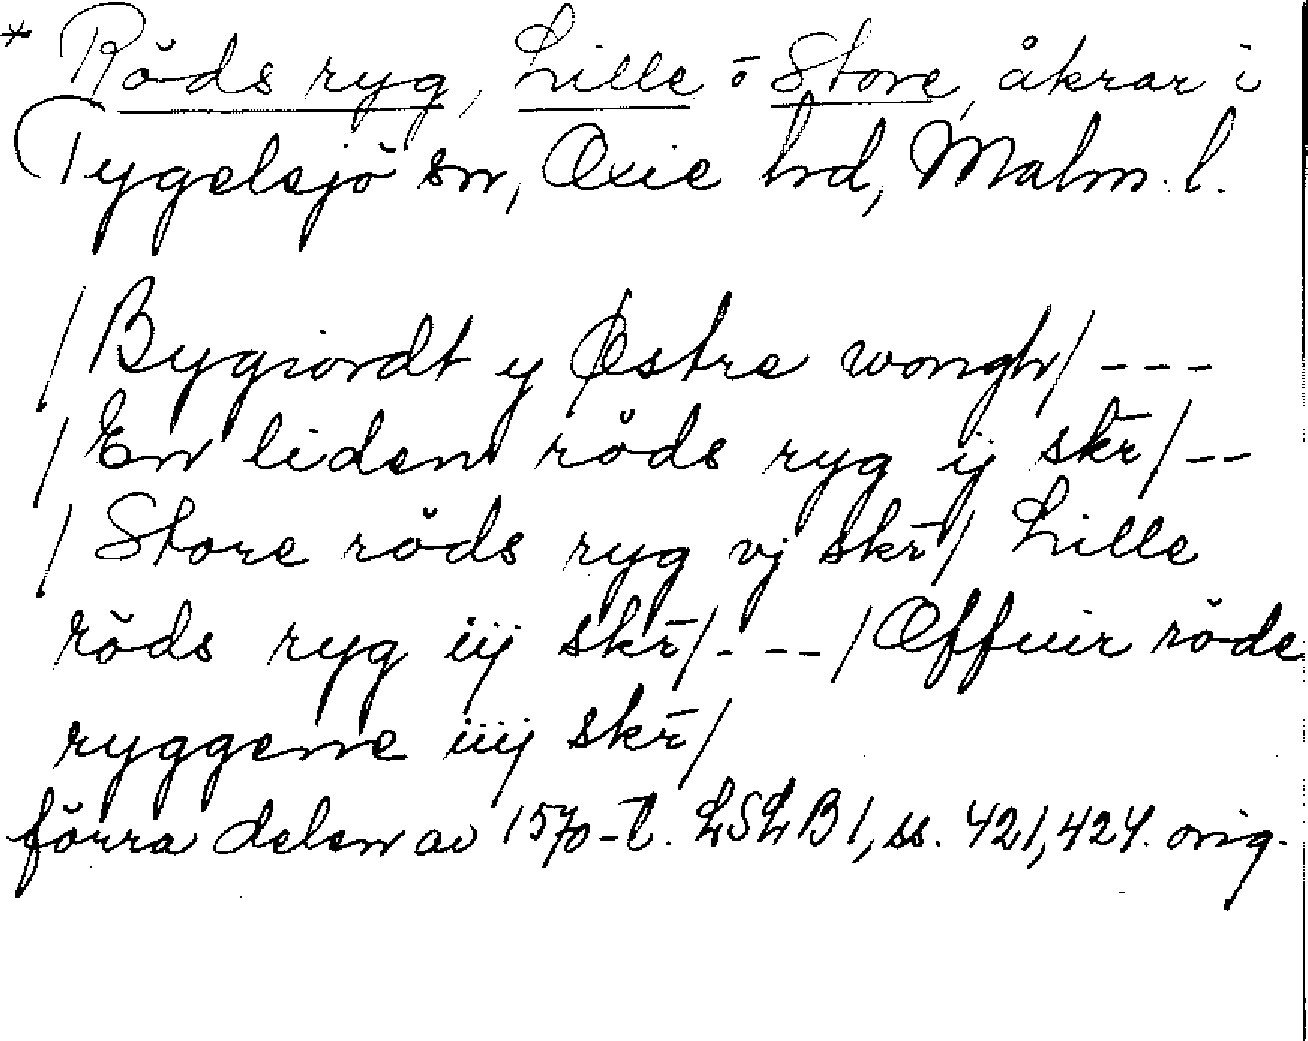 * Röds ryg, Lille o Store, åkrar i
Tygelsjö sn, Oxie hd, Malm. l.
/Bygiordt y Østre wongh/ ---
/En liden röds ryg ij skr̄/ --
/Store röds ryg vj skr̄/ Lille
röds ryg iij skr̄/ --- /Offuir röds
ryggene iiij skr̄/
förra delen av 1570-t. LSLB1, ss. 421, 424. orig.